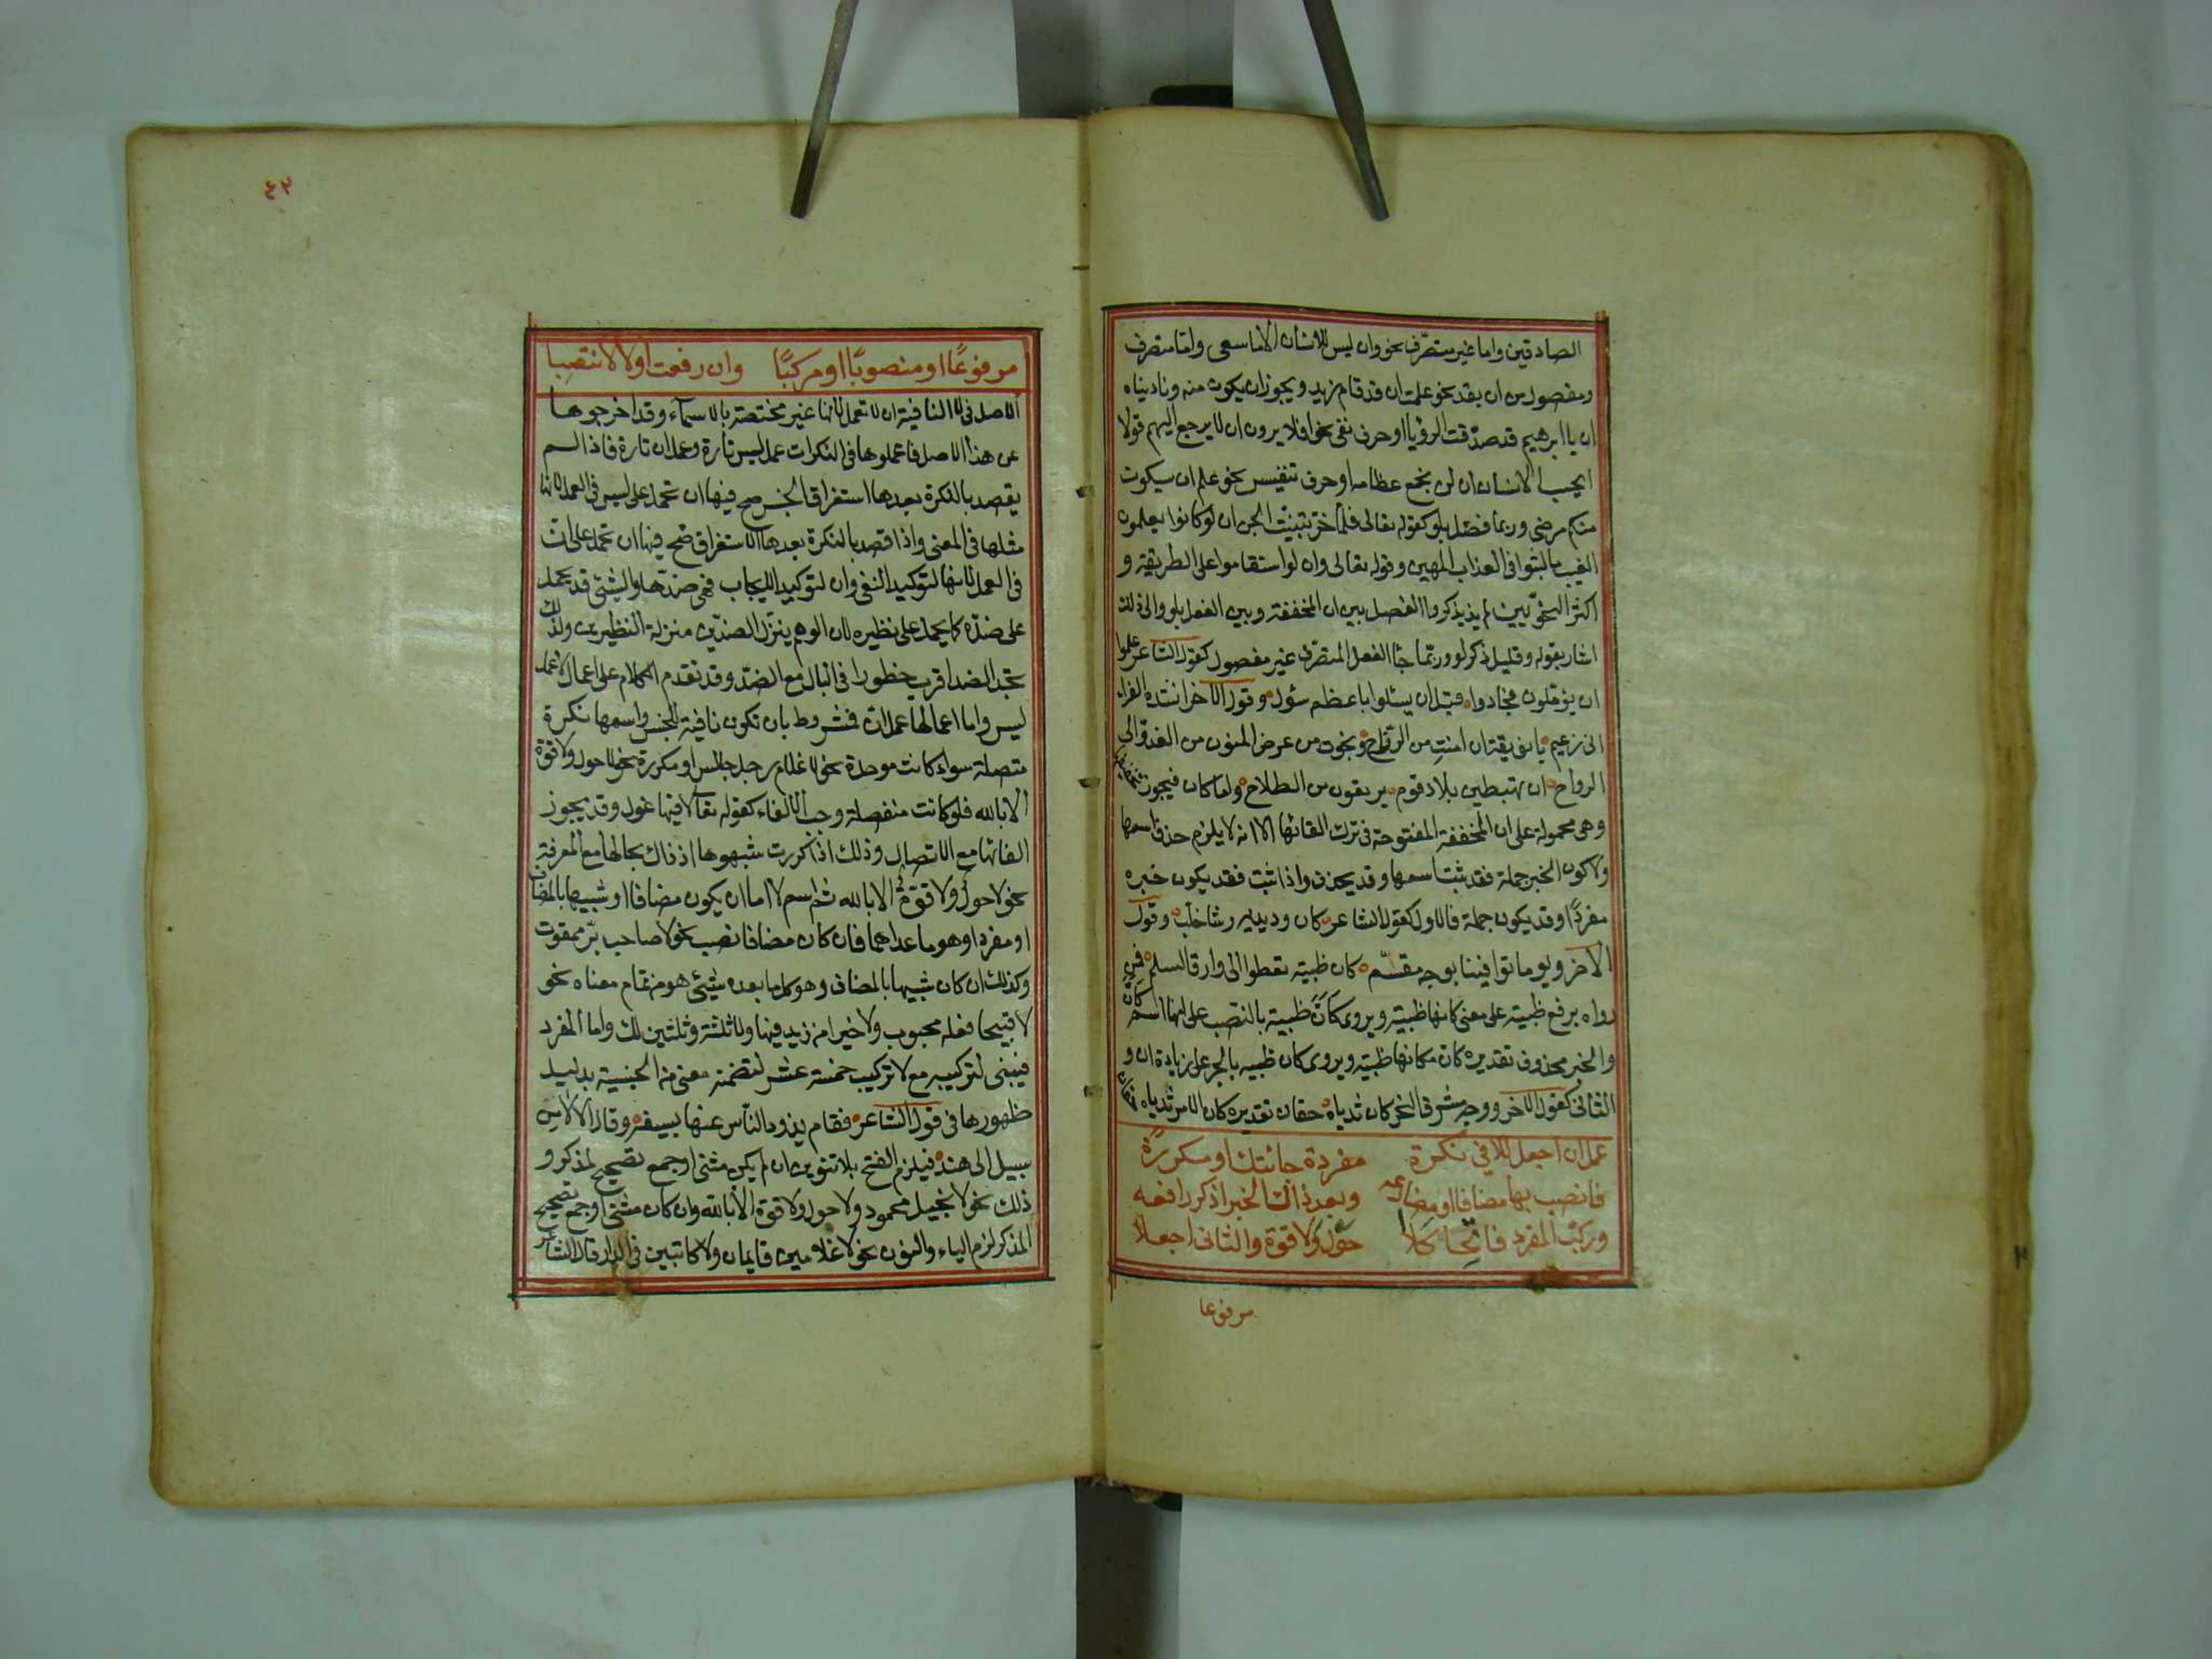 الصادقين واما غير متصرف نحو وان ليس للانسان الا ما سعى واما متصرف
ومفصول من ان بقد نحو علمت ان قد قام زيد ويجوز ان يكون منه وناديناه
ان يا ابرهيم قد صدّقت الرؤيا او حرف نفى نحو افلا يرون ان لا يرجع اليهم قولا
ايحسب الانسان ان لن نجمع عظامه او حرف تنفيس نحو علم ان سيكون
منكم مرضى وربما فصل بلو كقوله تعالى فلما خرّ تبينت الجن ان لو كانوا يعلمون
الغيب ما لبثوا فى العذاب المهين وقوله تعالى وان لو استقاموا على الطريقة و
اكثر النحويين لم يذكروا الفصل بين ان المخففة وبين الفعل بلو والى ذلك
اشار بقوله وقليل ذكر لو وربّما جاء الفعل المتصرف غير مفصول كقول الشاعر علموا
ان يؤملون فجادوا قبل ان يسئلوا باعظم سؤل وقول الاخر انشده الفراء
انى زعيم يا نويقة ان امنت من الرزاح ونجوت من عرض المنون من الغدو الى
الرواح ان تهبطين بلاد قوم يرتعون من الطلاح واما كان فيجوز تخفيفها
وهى محمولة على ان المخففة المفتوحة فى ترك الغائها الا انه لا يلزم حذف اسمها
ولا كون الخبر جملة فقد ثبت اسمها وقد يحذف واذا ثبت فقد يكون خبره
مفردًا وقد يكون جملة فالاول كقول الشاعر كان وريديه رشا خلب وقول
الاخر ويوما توافينا بوجه مقسّم كان ظبية تعطوا الى وارق السلم فمن
رواه برفع ظبية على معنى كانها ظبية ويروى كانّ ظبية بالنصب على انها اسم كان
والخبر محذوف تقديره كان مكانها ظبية ويروى كان ظبية بالجر على زيادة ان و
الثانى كقول الاخر ووجه مشرق النحر كان ثدياه حقان تقديره كان الامر ثدياه حقان
عمل ان اجعل للا فى نكرة مفردة جائتك او مكررة
فانصب بها مضافا او مضارعه وبعد ذاك الخبر اذكر رافعه
وركّب المفرد فاتحا كلا حول ولا قوة والثانى اجعلا
مرفوعا
٤٣
مرفوعًا او منصوبًا او مركبًا وان رفعت اولا لا تنصبا
الاصل فى لا النافية ان لا تعمل لانها غير مختصة بالاسماء وقد اخرجوها
عن هذا الاصل فاعملوها فى النكرات عمل ليس تارة وعمل ان تارة فاذا لم
يقصد بالنكرة بعدها استغراق الجنس صح فيها ان تحمل على ليس فى العمل لانها
مثلها فى المعنى واذا قصد بالنكرة بعدها الاستغراق صح فيها ان تحمل على ان
فى العمل لانها لتوكيد النفى وان لتوكيد الايجاب فهى ضدّها والشئ قد يحمل
على ضدّه كما يحمل على نظيره لان الوهم ينزّل الضدّين منزلة النظيرين ولذلك
نجد الضد اقرب خطورا فى البال مع الضدّ وقد تقدم الكلام على اعمال لا عمل
ليس واما اعمالها عمل ان فمشروط بان تكون نافية للجنس واسمها نكرة
متصلة سواء كانت موحدة نحو لا غلام رجل جالس او مكررة نحو لا حول ولا قوة
الا بالله فلو كانت منفصلة وجب الالغاء كقوله تعالى لا فيها غول وقد يجوز
الغائها مع الاتصال وذلك اذا كررت شبهوها اذ ذاك بحالها مع المعرفة
نحو لا حولٌ ولا قوةٌ الا بالله ثم اسم لا اما ان يكون مضافا او شبيها بالمضاف
او مفردا وهو ما عداهما فان كان مضافا نصب نحو لا صاحب برّ ممقوت
وكذلك ان كان شبيها بالمضاف وهو كل ما بعده شيئ هو من تمام معناه نحو
لا قبيحا فعله محبوب ولا خيرا من زيد فيها ولا ثلثة وثلثين لك واما المفرد
فيبنى لتركيبه مع لا تركيب خمسة عشر لتضمنه معنى من الجنسية بدليل
ظهورها فى قول الشاعر فقام يذود الناس عنها بسيفه وقال الا لا من
سبيل الى هند فيلزم الفتح بلا تنوين ان لم يكن مثنى او جمع تصحيح لمذكر و
ذلك نحو لا بخيل محمود ولا حول ولا قوة الا بالله وان كان مثنى او جمع تصحيح
المذكر لزم الياء والنون نحو لا غلامين قايمان ولا كاتبين فى الدار قال الشاعر